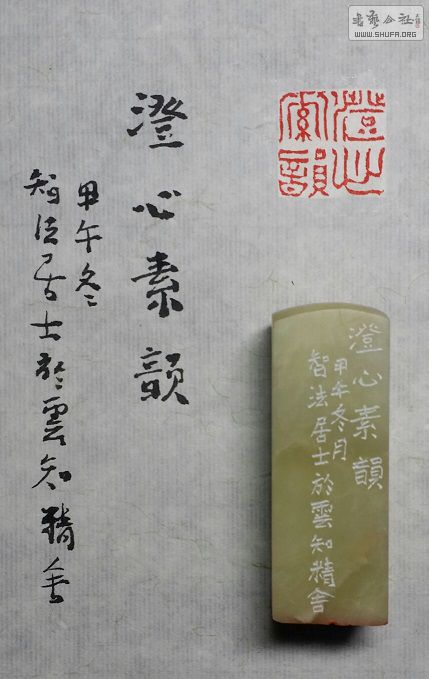 書藝公社
WWW.SHUFA.ORG
澄心素韻
澄心素韻
甲午冬
智法居士於雲知精舍
澄心素韻
甲午冬月
智法居士於雲知精舍